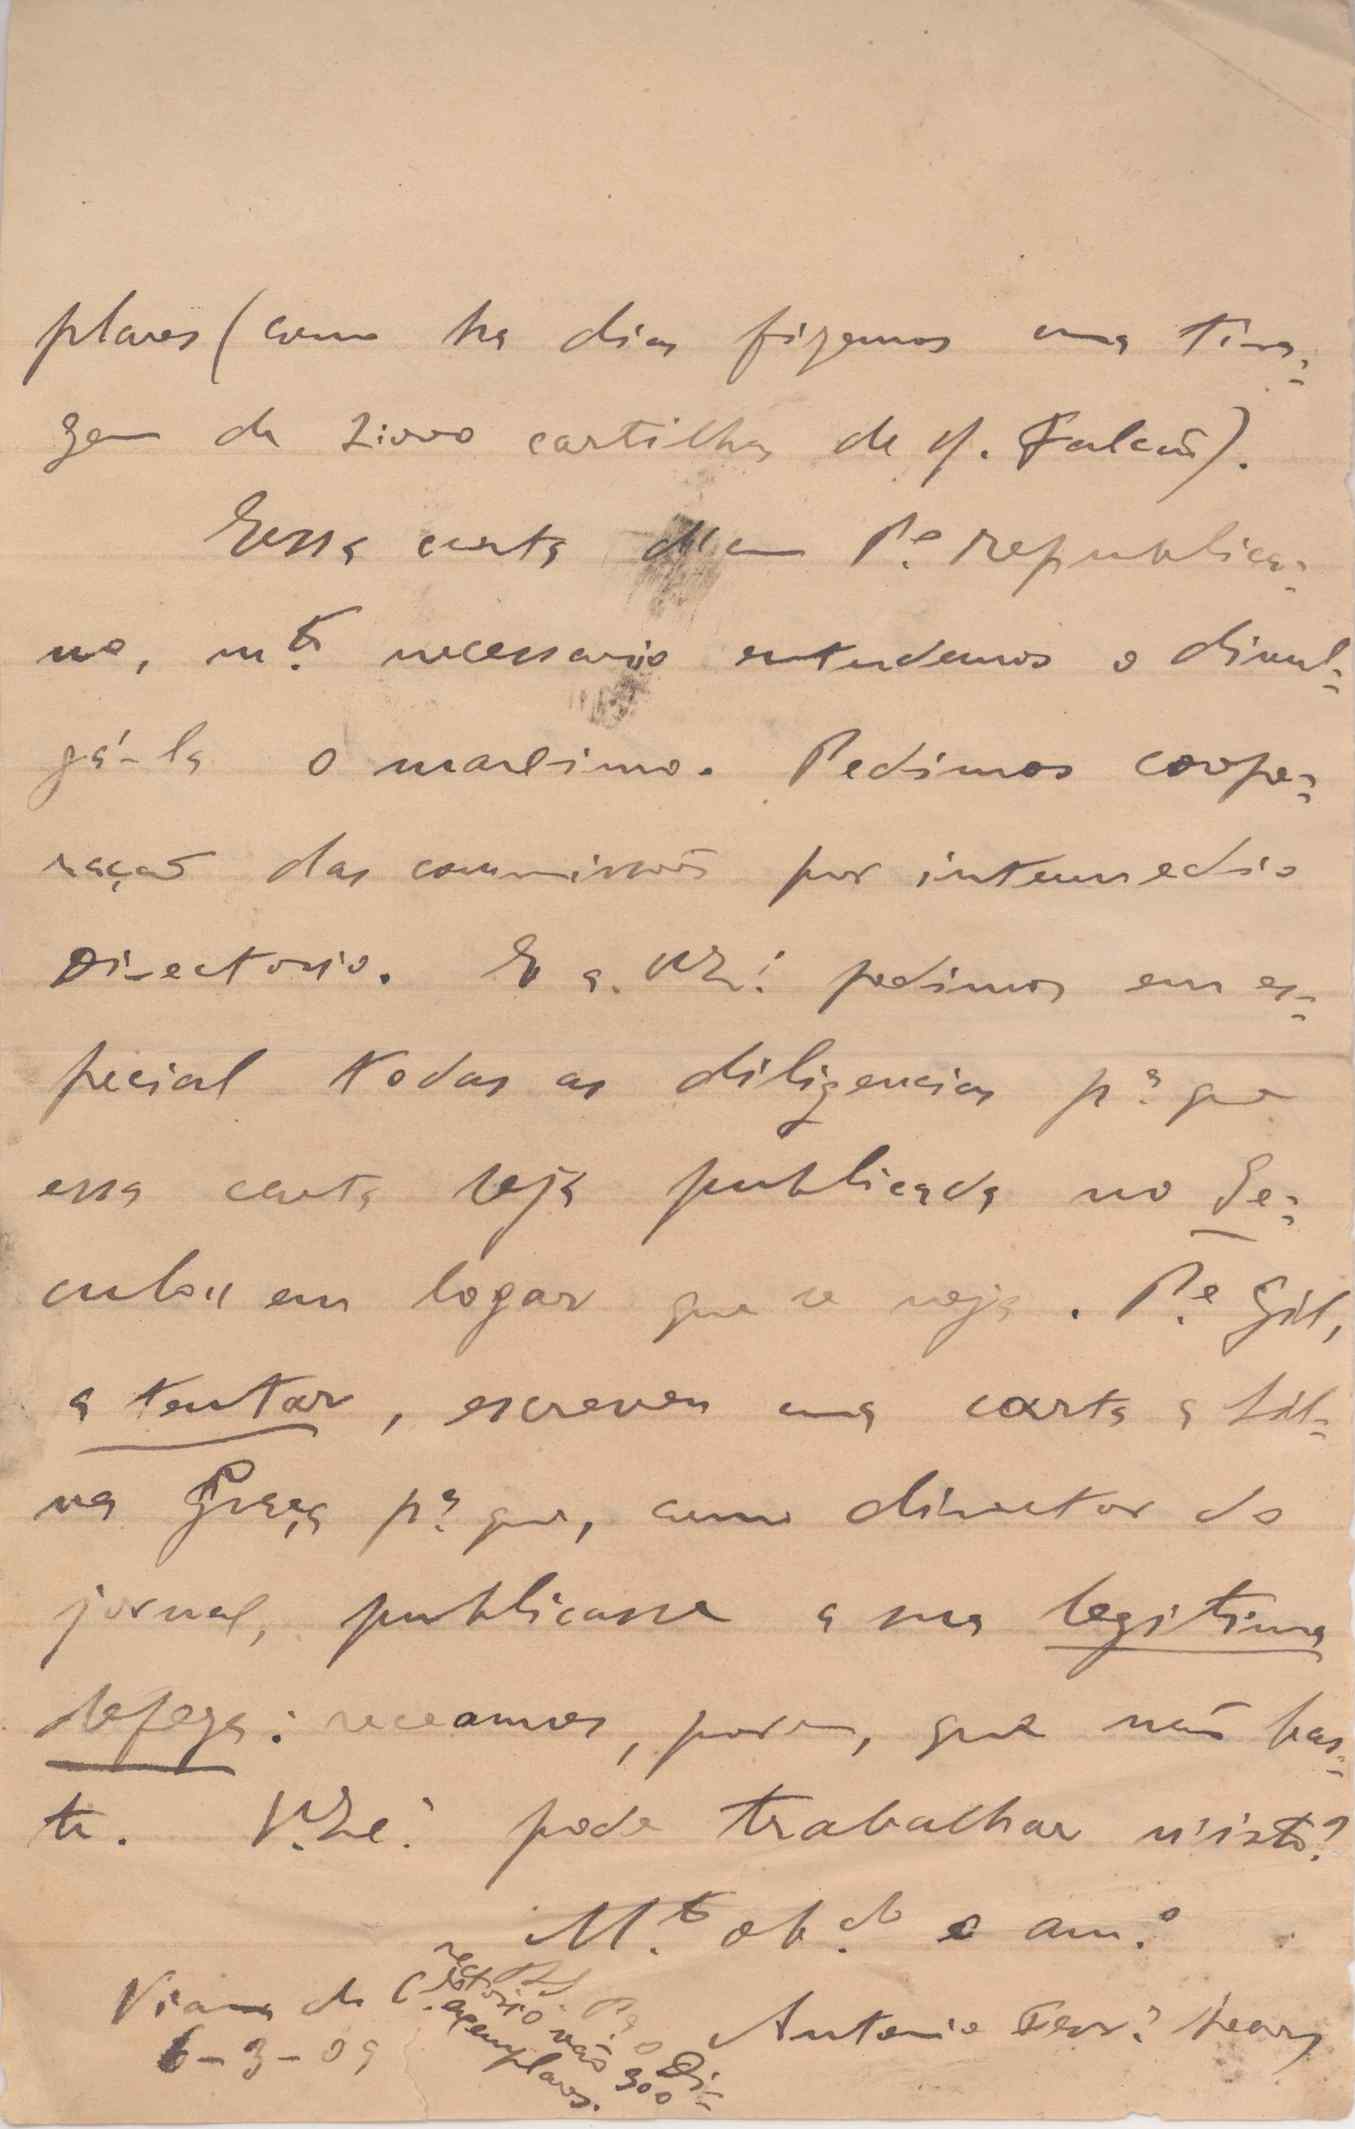 plares (como ha dias fizemos uma tira-
gem de 2:000 cartilhas de J. Falcão).
Essa carta d'um P.e republica-
no, m.to necessario entendemos o divul-
gá-la o maximo. Pedimos coope-
ração das commissões por intermedio
Directorio. E a V. Ex.ª pedimos em es-
pecial todas as diligencias p.ª que
essa carta seja publicada no Se-
culo" em logar que se veja. P.e Gil,
a tentar, escreveu uma carta a Sil-
va Graça p.ª que, como director do
jornal, publicasse a sua legitima
defeza: receamos, porem, que não bas-
te. V. Ex.ª pode trabalhar n'isto?
M.to ob.do e am.º
Antonio Ferr.ª Soares
Viana do C.
6-3-09
P.S. P.ª o Di-
rectorio vão 300
exemplares.